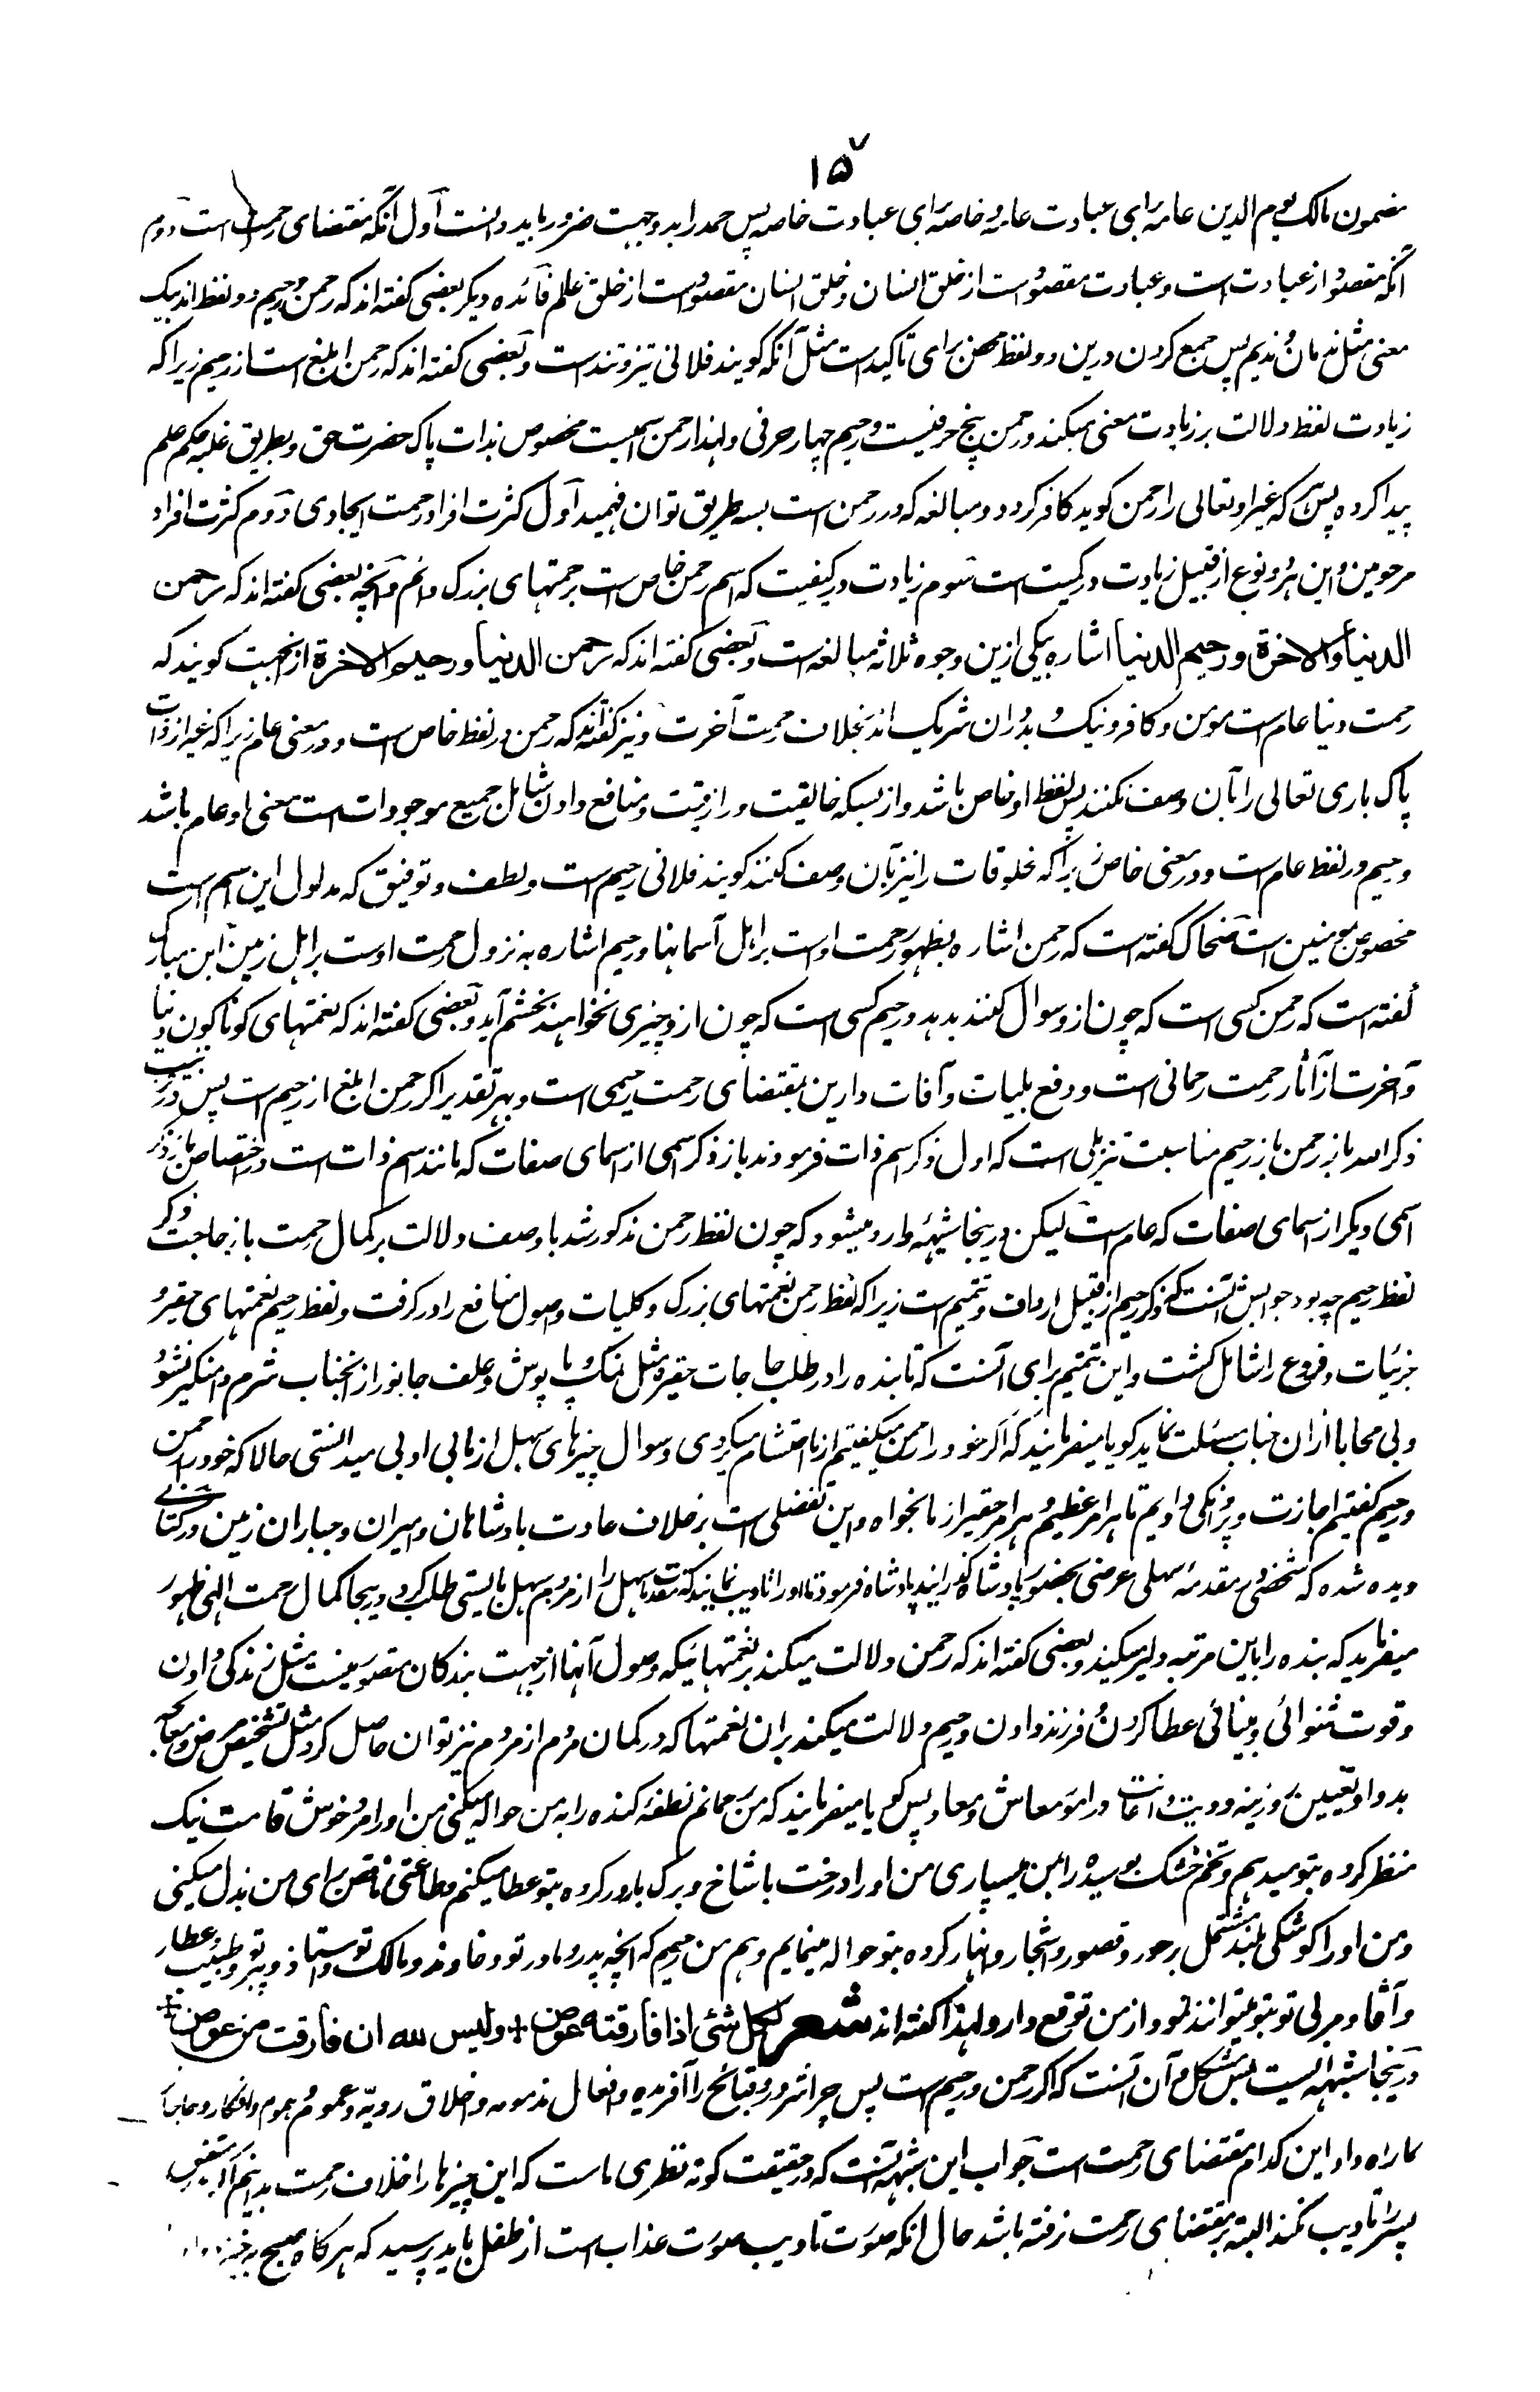 ۱۵
مضمون مالک یوم الدین عامه برای عبادت عامه و خاصه برای عبادت خاصه پس حمد را بدو جهت ضرور باید دانست اول آنکه مقتضای رحمت است دوم
آنکه مقصود از عبادت است و عبادت مقصود است از خلق انسان و خلق انسان مقصود است از خلق عالم فائده دیگر بعضی گفته اند که رحمن و رحیم دو لفظ اند بیک
معنی مثل ندمان و ندیم پس جمع کردن درین دو لفظ محض برای تاکید است مثل آنکه گویند فلانی تیز و تند است و بعضی گفته اند که رحمن ابلغ است از رحیم زیرا که
زیادت لفظ دلالت بر زیادت معنی میکند و رحمن پنج حرفیست و رحیم چهار حرفی و لهذا رحمن اسمیست مخصوص بذات پاک حضرت حق و بطریق غلبه حکم علم
پیدا کرده پس هر که غیر او تعالی را رحمن گوید کافر گردد و مبالغه که در رحمن است بسه طریق توان فهمید اول کثرت افراد رحمت ایجادی دوم کثرت افراد
مرحومین و این هر دو نوع از قبیل زیادت در کمیت است سوم زیادت در کیفیت که اسم رحمن خاص است برحمتهای بزرگ و دائم و آنچه بعضی گفته اند که رحمن
الدنیا والاخرة ورحیم الدنیا اشاره بیکی ازین وجوه ثلاثه مبالغه است و بعضی گفته اند که رحمن الدنیا ورحیم الاخرة ازین جهت گویند که
رحمت دنیا عام است مومن و کافر و نیک و بد دران شریک اند بخلاف رحمت آخرت و نیز گفته اند که رحمن در لفظ خاص است و در معنی عام زیرا که غیر از ذات
پاک باری تعالی را بآن وصف نکنند پس لفظ او خاص باشد و از بسکه خالقیت و رازقیت و منافع دادن شامل جمیع موجودات است معنی او عام باشد
و رحیم در لفظ عام است و در معنی خاص زیرا که مخلوقات را نیز بآن وصف کنند گویند فلانی رحیم است و لطف و توفیق که مدلول این اسم است
مخصوص بمومنین است ضحاک گفته است که رحمن اشاره بظهور رحمت اوست بر اهل آسمانها و رحیم اشاره به نزول رحمت اوست بر اهل زمین ابن مبارک
گفته است که رحمن کسی است که چون ازو سوال کنند بدهد و رحیم کسی است که چون ازو چیزی نخواهند بخشم آید و بعضی گفته اند که نعمتهای گوناگون دنیا
و آخرت از آثار رحمت رحمانی است و دفع بلیات و آفات دارین بمقتضای رحمت رحیمی است و بهر تقدیر اگر رحمن ابلغ از رحیم است پس در ترتیب
ذکر الله باز رحمن باز رحیم مناسبت تنزیلی است که اول ذکر اسم ذات فرمودند باز ذکر اسمی از اسمای صفات که مانند اسم ذات است در اختصاص باز ذکر
اسمی دیگر از اسمای صفات که عام است لیکن درینجا شبهه وارد میشود که چون لفظ رحمن مذکور شد با وصف دلالت بر کمال رحمت باز حاجت ذکر
لفظ رحیم چه بود جوابش آنست که ذکر رحیم از قبیل ارداف و تتمیم است زیرا که لفظ رحمن نعمتهای بزرگ و کلیات و اصول منافع را در گرفت و لفظ رحیم نعمتهای حقیر و
جزئیات و فروع را شامل گشت و این تتمیم برای آنست که تا بنده را در طلب حاجات حقیره مثل نمک و پاپوش و علف جانور از انجناب شرم دامنگیر نشود
و بی محابا از ان جناب مسئلت نماید گویا میفرمایند که اگر خود را رحمن میگفتیم از ما احتشام میکردی و سوال چیزهای سهل از ما بی ادبی میدانستی حالا که خود را رحمن
و رحیم گفتیم اجازت و پروانگی دادیم تا هر امر عظیم و هر امر حقیر از ما بخواه و این تفضلی است بر خلاف عادت بادشاهان و امیران و جباران زمین در کتابی
دیده شده که شخصی در مقدمه سهلی عرضی بحضور پادشاه گذرانید پادشاه فرمود تا او را تادیب نمایند که مقدمه سهل را از مردم سهل بایستی طلب کرد درینجا کمال رحمت الهی ظهور
میفرماید که بنده را باین مرتبه دلیر میکند و بعضی گفته اند که رحمن دلالت میکند بر نعمتهائیکه وصول آنها از جهت بندگان متصور نیست مثل زندگی دادن
و قوت شنوائی و بینائی عطا کردن و فرزند دادن و رحیم دلالت میکند بران نعمتها که در گمان مردم از مردم نیز توان حاصل کرد مثل تشخیص مرض و معالجه
بدوا و تعیین روزینه و دویت و اعانت در امور معاش و معاد پس گویا میفرمایند که من رحمانم نطفه گنده را به من حواله میکنی من او را مرد خوش قامت نیک
منظر کرده بتو میدهم و تخم خشک بوسیده را بمن میسپاری من او را درخت با شاخ و برگ بارور کرده بتو عطا میکنم و طاعتی ناقص برای من بذل میکنی
و من او را کوشکی بلند مشتمل بر حور و قصور و اشجار و انهار کرده بتو حواله مینمایم و هم من رحیم که آنچه پدر و مادر تو و خاوند و مالک تو و استاذ و پیر تو و طبیب و عطار
و آشنا و مربی تو بتو میتوانند نمود از من توقع دار و لهذا گفته اند شعر لکل شئ اذا فارقته عوض + ولیس لله ان فارقت من عوض +
درینجا شبهه ایست بس مشکل و آن آنست که اگر رحمن و رحیم است پس چرا شرور و قبائح را آفریده و افعال مذمومه و اخلاق ردیّه و غموم و هموم و افکار و حاجات
ما را داد این کدام مقتضای رحمت است جواب این شبهه آنست که در حقیقت کوته نظری ماست که این چیزها را خلاف رحمت بدانیم
پسر را تادیب نکند البته بر مقتضای رحمت نرفته باشد حال آنکه صورت تادیب صورت عذاب است از طفل باید پرسید که هرگاه صبح